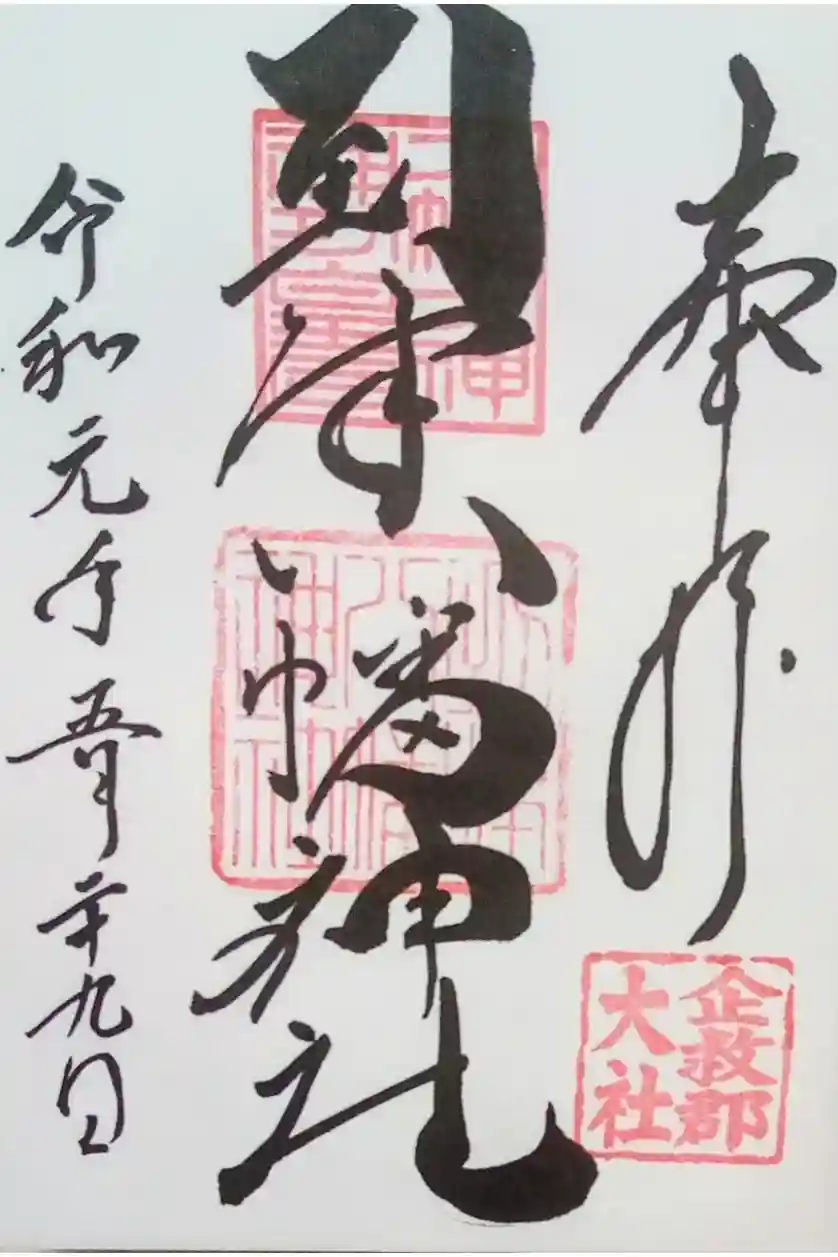 奉拝
企救郡
大社
到津八幡神社
令和元年五月二十九日